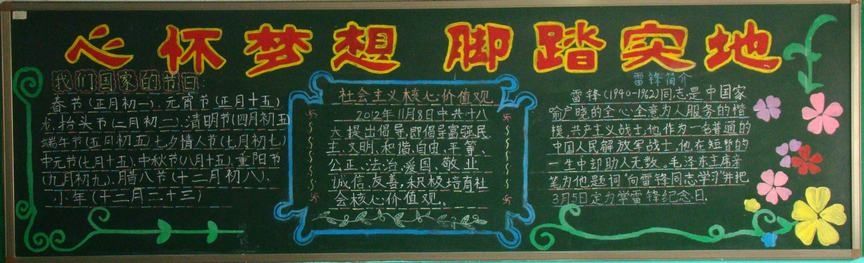 心怀梦想 脚踏实地
我们国家的节日
春节(正月初一)、元宵节(正月十五)
龙抬头节(二月初二)、清明节(四月初五
端午节(五月初五)七夕情人节(七月初七)
中元节(七月十五)、中秋节(八月十五)、重阳节
(九月初九)、腊八节(十二月初八)、
小年(十二月二十三)
社会主义核心价值观
2012年11月8日中共十八
大提出倡导,即倡导富强,民
主、文明、和谐,自由、平等、
公正、法治,爱国、敬业、
诚信、友善,积极培育社
会核心价值观.
雷锋简介
雷锋(1940-1962)同志,是中国家
喻户晓的全心全意为人服务的楷
模,共产主义战士,他作为一名普通的
中国人民解放军战士,他在短暂的
一生中却助人无数。毛泽东主席亲
笔为他题词"向雷锋同志学习"并把
3月5日定为学雷锋纪念日.